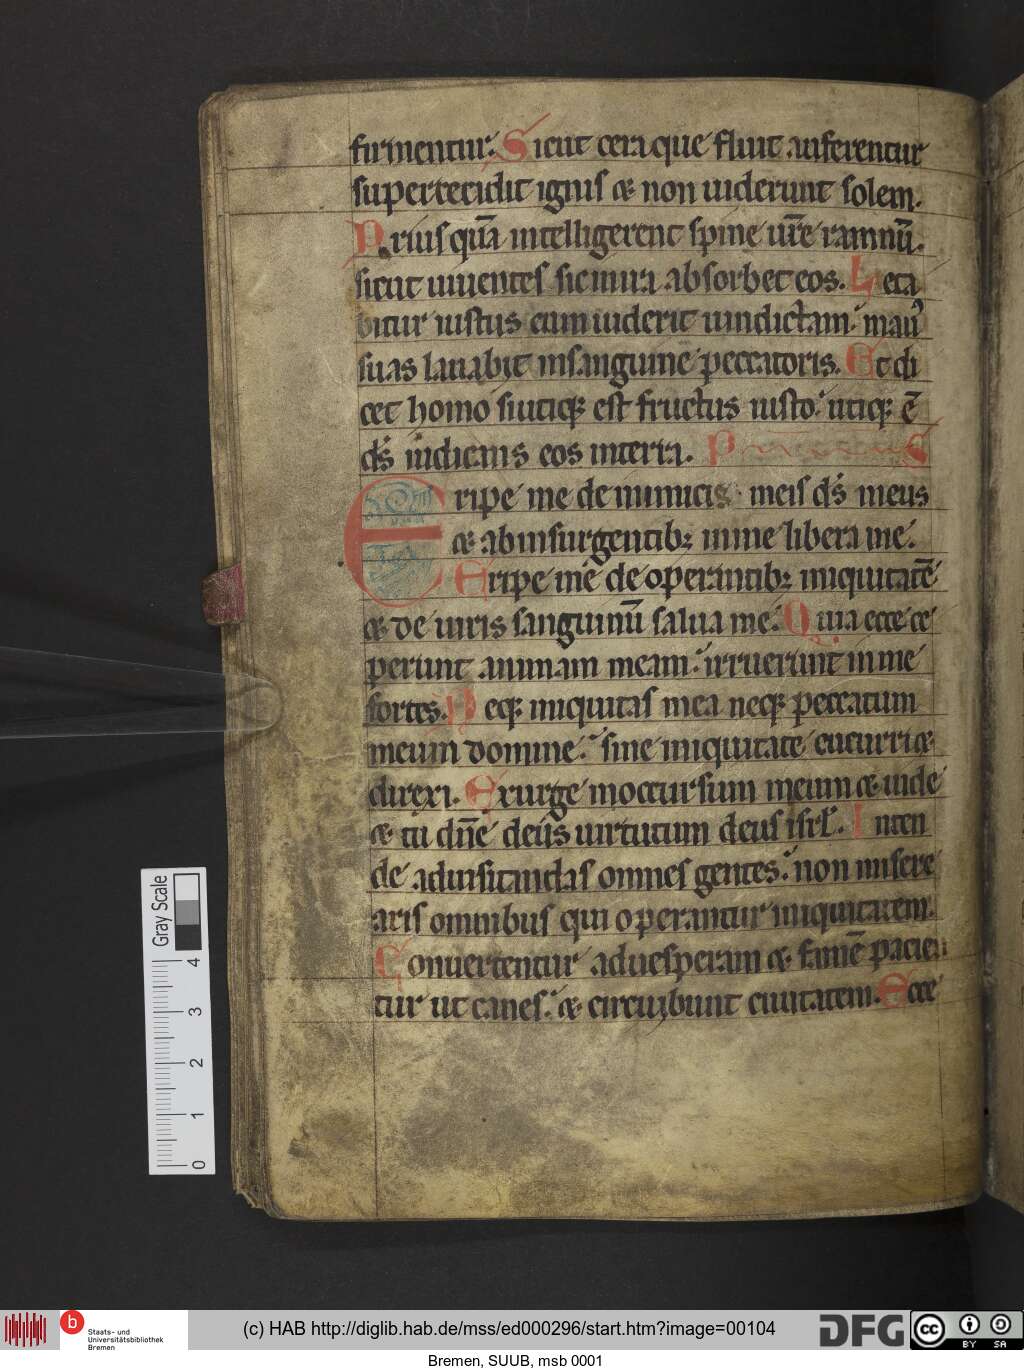 firmentur. Sicut cera que fluit auferentur
supercecidit ignis & non uiderunt solem.
Priusquā intelligerent spine ur̄e ramnū.
sicut uiuentes sic in ira absorbet eos. Leta
bitur iustus cum uiderit uindictam. manꝰ
suas lauabit in sanguine peccatoris. Et di
cet homo si utiqꝫ est fructus iusto. utiqꝫ ē
ds̄ iudicans eos in terra. P S
Eripe me de inimicis meis ds̄ meus
& ab insurgentibꝫ in me libera me.
Eripe me de operantibꝫ iniquitatē
& de uiris sanguinū salua me. Quia ecce ce
perunt animam meam. irruerunt in me
fortes. Neqꝫ iniquitas mea neqꝫ peccatum
meum domine. sine iniquitate cucurri &
direxi. Exurge in occursum meum & uide
& tu dn̄e deus uirtutum deus isrl̄. Inten
de ad uisitandas omnes gentes. non misere
aris omnibus qui operantur iniquitatem.
Conuertentur ad uesperam & famē pacien
tur ut canes. & circuibunt ciuitatem. Ecce
Gray Scale
4
3
2
1
0
b
Staats- und
Universitätsbibliothek
Bremen
(c) HAB http://diglib.hab.de/mss/ed000296/start.htm?image=00104
DFG
cc
BY SA
Bremen, SUUB, msb 0001